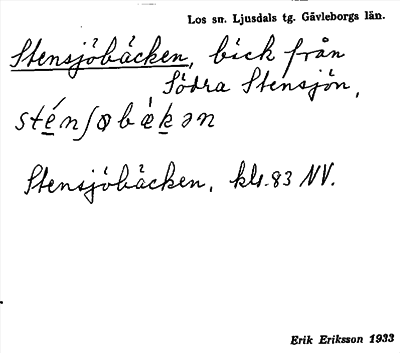 Los sn. Ljusdals tg. Gävleborgs län.
Stensjöbäcken, bäck från
Södra Stensjön,
sténʃøbæ̀kən
Stensjöbäcken, kbl. 83 NV.
Erik Eriksson 1933